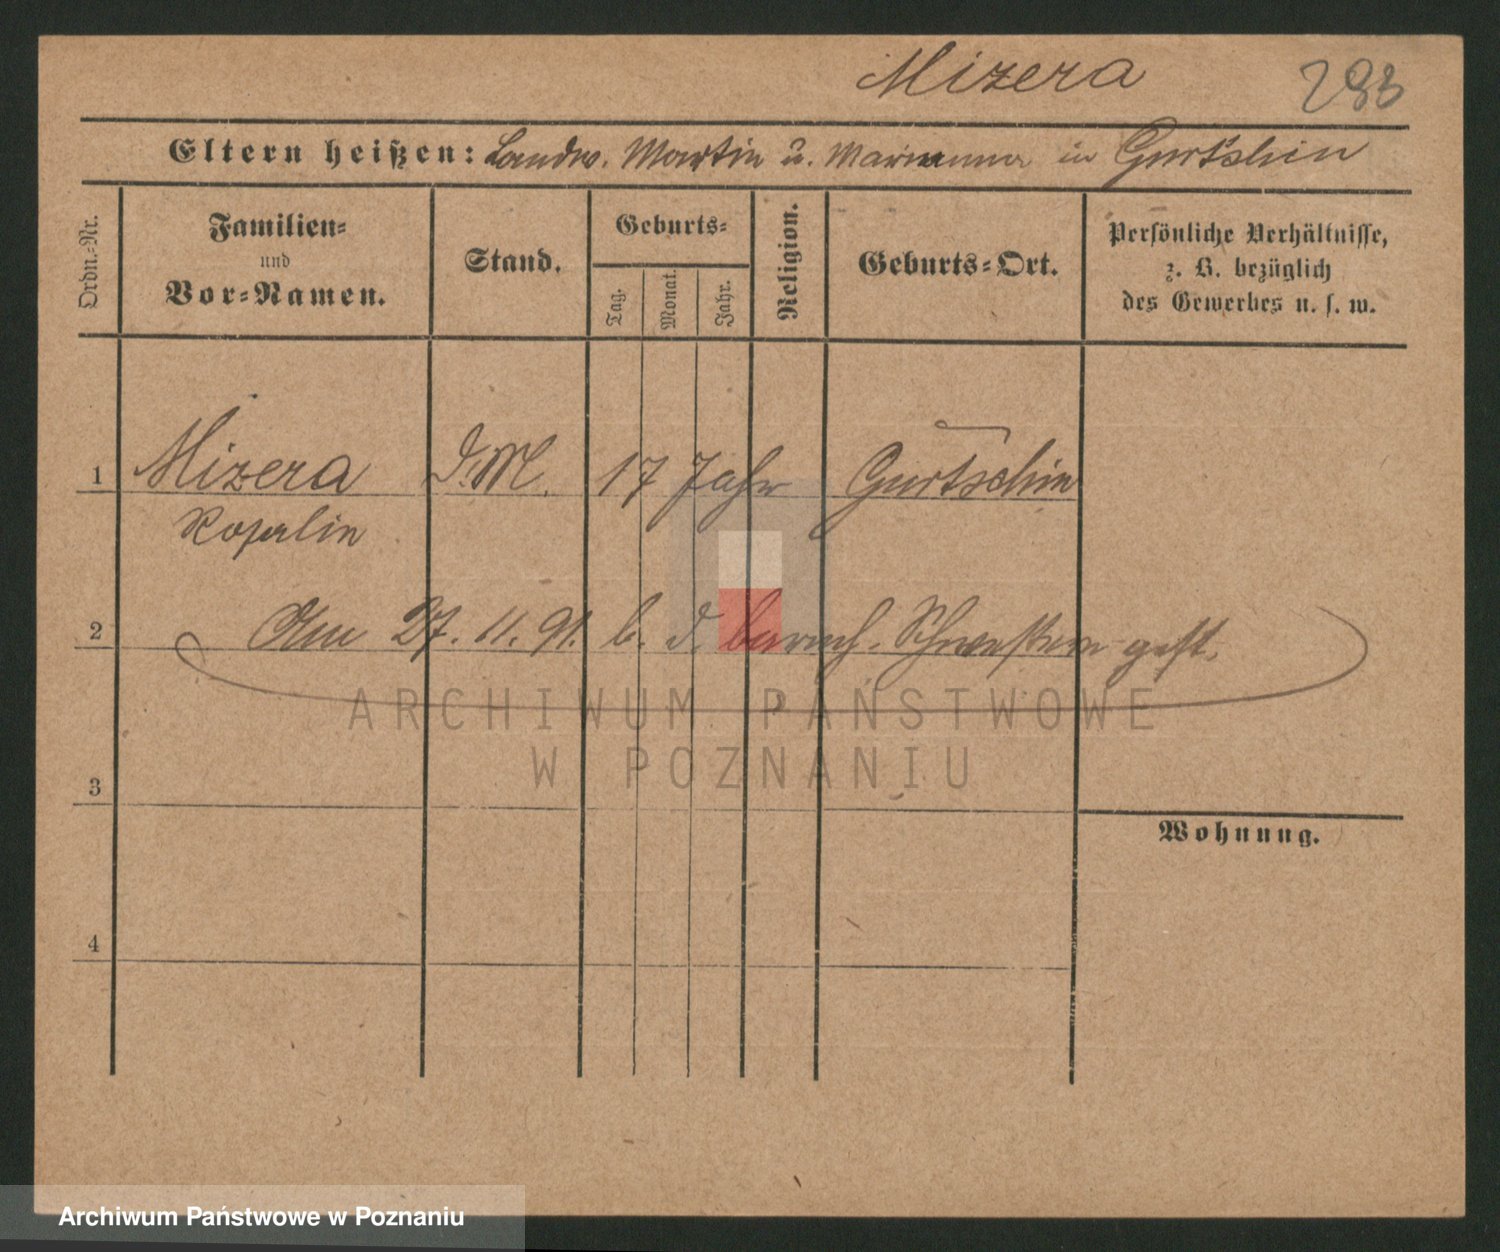 Mizera 293
Eltern heißen: Landw. Martin u. Marianna in Gurtschin
Ordn.-Nr.
Familien-
und
Vor-Namen.
Stand.
Geburts-
Tag.
Monat.
Jahr.
Religion.
Geburts-Ort.
Persönliche Verhältnisse,
z. B. bezüglich
des Gewerbes u. s. w.
1 Mizera D.M. 17 Jahr Gurtschin
Rosalin
2 Am 27. 11. 91. b. d. barmh. Schwestern gest.
3
Wohnung.
4
ARCHIWUM PAŃSTWOWE
W POZNANIU
Archiwum Państwowe w Poznaniu